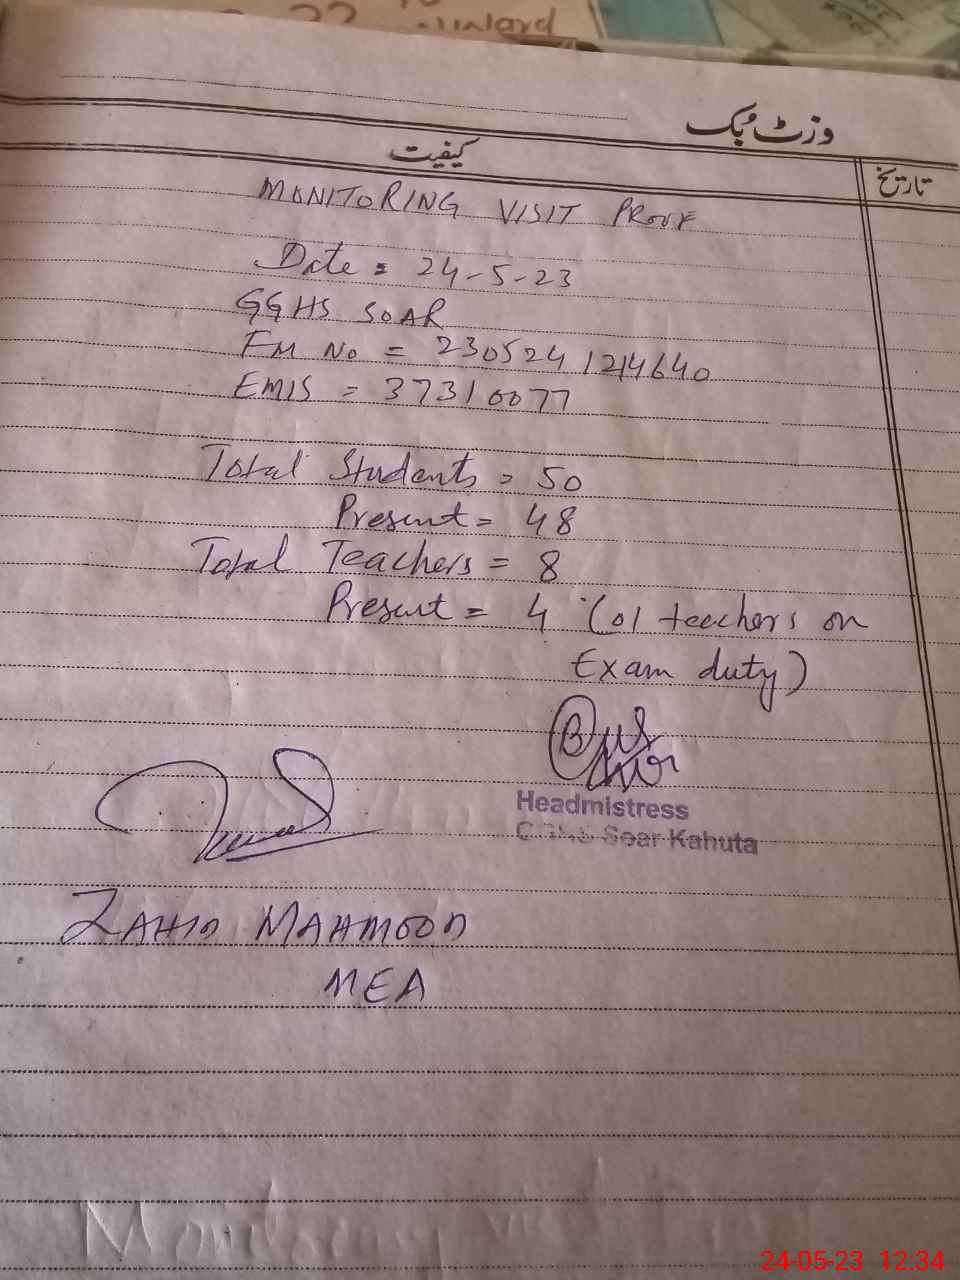 وزٹ بُک
کیفیت
تاریخ
MONITORING VISIT PROVE
Date = 24-5-23
GGHS SOAR
FM No = 2305241214640
EMIS = 37310077
Total Students = 50
Present = 48
Total Teachers = 8
Present = 4 (01 teachers on
Exam duty)
Headmistress
Soar Kahuta
ZAHID MAHMOOD
MEA
24-05-23 12:34